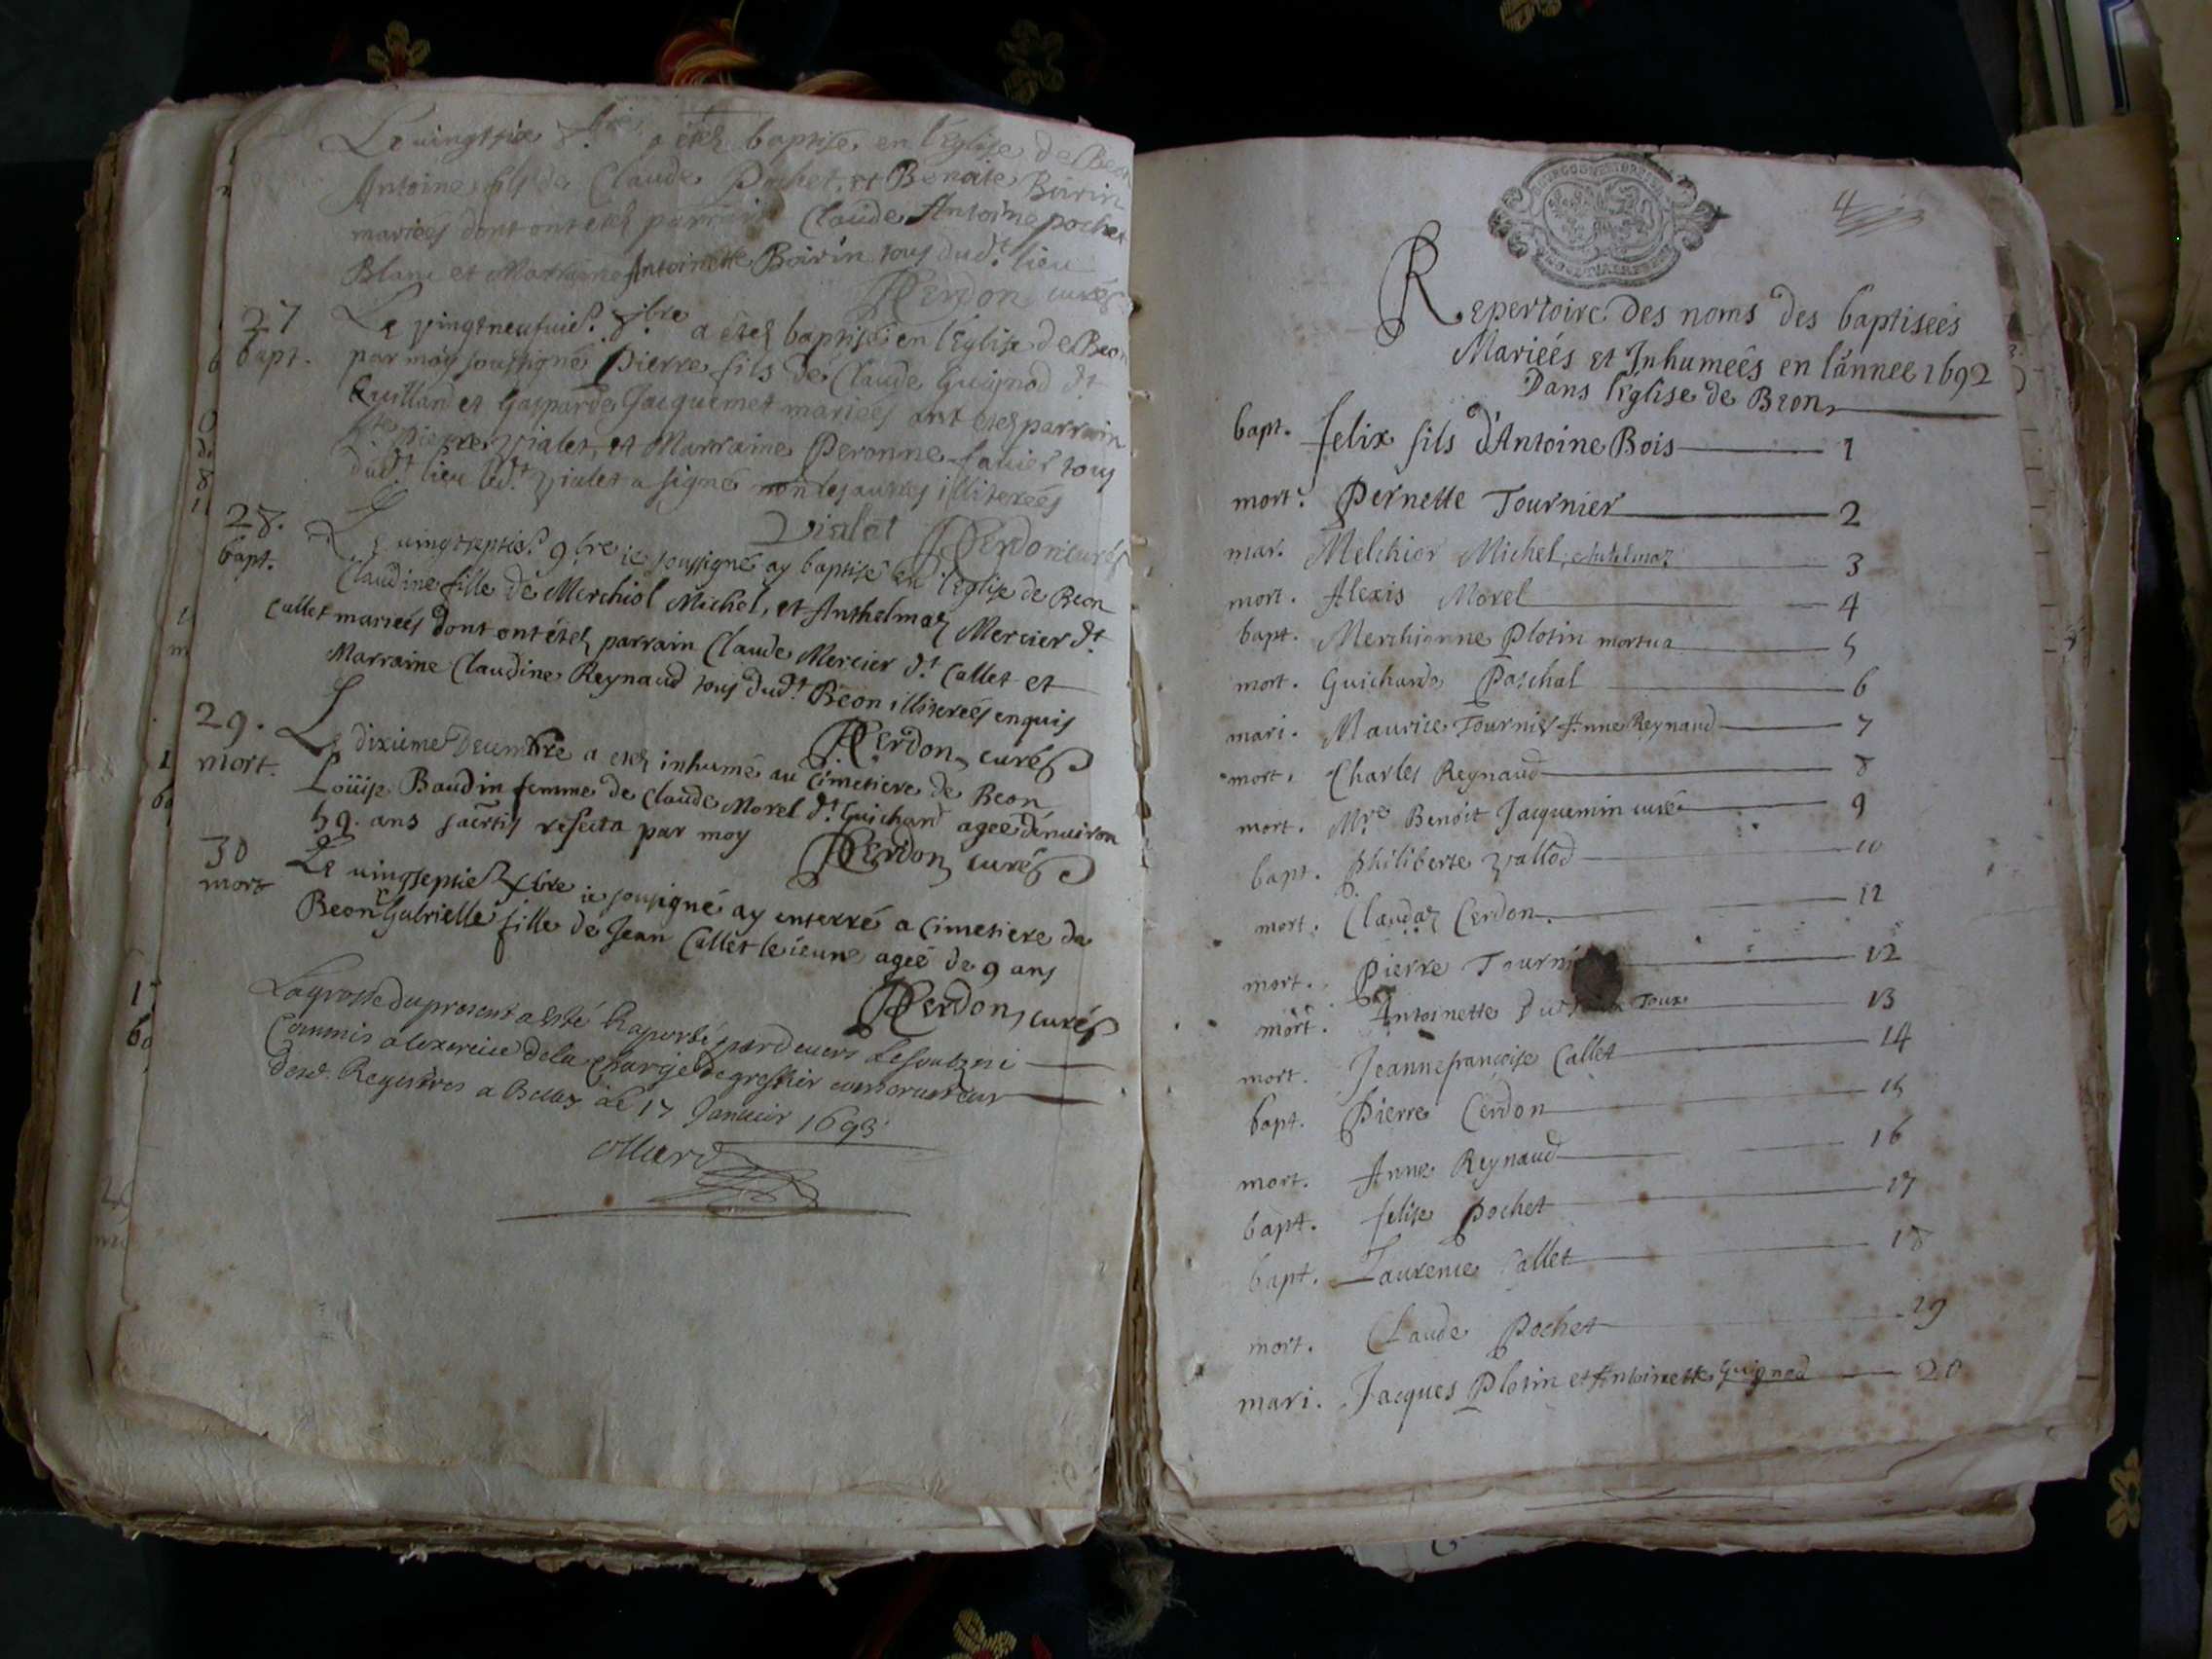 Le vingtsix 8bre a etez baptise en l'Eglise de Beon
Antoine fils de Claude Pochet, et Benoite Boirin
mariées dont ont etez parrain Claude Antoine pochet
Blanc et Marraine Antoinette Boirin tous dud.t lieu
Cerdon curé
27 Le vingtneufuie. 8bre a etez baptisé en l'Eglise de Beon
bapt. par moy soussigné Pierre fils de Claude Guignod d.t
Quilland et Gasparde Jacquemet mariées ont etez parrain
Pierre Vialet, et Marraine Peronne favier tous
dud.t lieu led.t Vialet a signé non les autres illiterées
Vialet Cerdon curé
28. Le vingtseptie. 9bre ie soussigné ay baptisé en l'Eglise de Beon
bapt. Claudine fille de Merchiol Michel, et Anthelmaz Mercier d.t
Callet mariées dont ont étez parrain Claude Mercier d.t Callet et
Marraine Claudine Reynaud tous dud.t Beon illiterées enquis
Cerdon curé
29. Le dixieme Decembre a etez inhumé au Cimetiere de Beon
mort. Loüise Baudin femme de Claude Morel d.t Guichard agee d'enuiron
59. ans sacrtis refecta par moy Cerdon curé
30 Le vingtseptie Xbre ie sousigné ay enterré a Cimetiere de
mort Beon Gabrielle fille de Jean Callet le ieune agée de 9 ans
Cerdon, curé
La grosse du present a esté Raporté pardeuers Le soubzne
Commis a lexercice de la Charge de greffier conseruateur
desd. Registres a Belley Le 17 Januier 1693
Repertoire des noms des baptiseés
Mariéés et Inhumeés en l'annee 1692
Dans l'Eglise de Beon
bapt. felix fils d'Antoine Bois 1
mort. Pernette Tournier 2
mar. Melchior Michel, Anthelmaz 3
mort. Alexis Morel 4
bapt. Merchionne Plotin mortua 5
mort. Guicharde Paschal 6
mari. Maurice Tournier Anne Reynaud 7
mort. Charles Reynaud 8
mort. Mre Benoit Jacquemin curé 9
bapt. Philiberte Vallod 10
mort. Claudaz Cerdon. 11
mort. Pierre Tourni 12
mort. Antoinette 13
mort. Jeanne françoise Callet 14
bapt. Pierre Cerdon 15
mort. Anne Reynaud 16
bapt. felise Pochet 17
bapt. Laurence Callet 18
mort. Claude Pochet 19
mari. Jacques Plotin et Antoinette Guignod 20